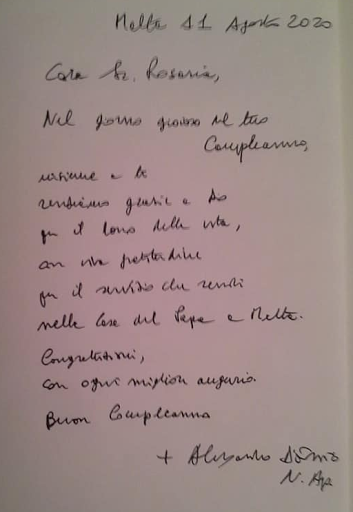 Malta 11 Agosto 2020
Cara Sr. Rosaria,
Nel giorno gioioso del tuo
Compleanno,
insieme a te
rendiamo grazie a Dio
per il dono della vita,
con viva gratitudine
per il servizio che rendi
nella Casa del Papa a Malta.
Congratulazioni,
con ogni miglior augurio.
Buon Compleanno
+ Alessandro D'Errico
N. Ap